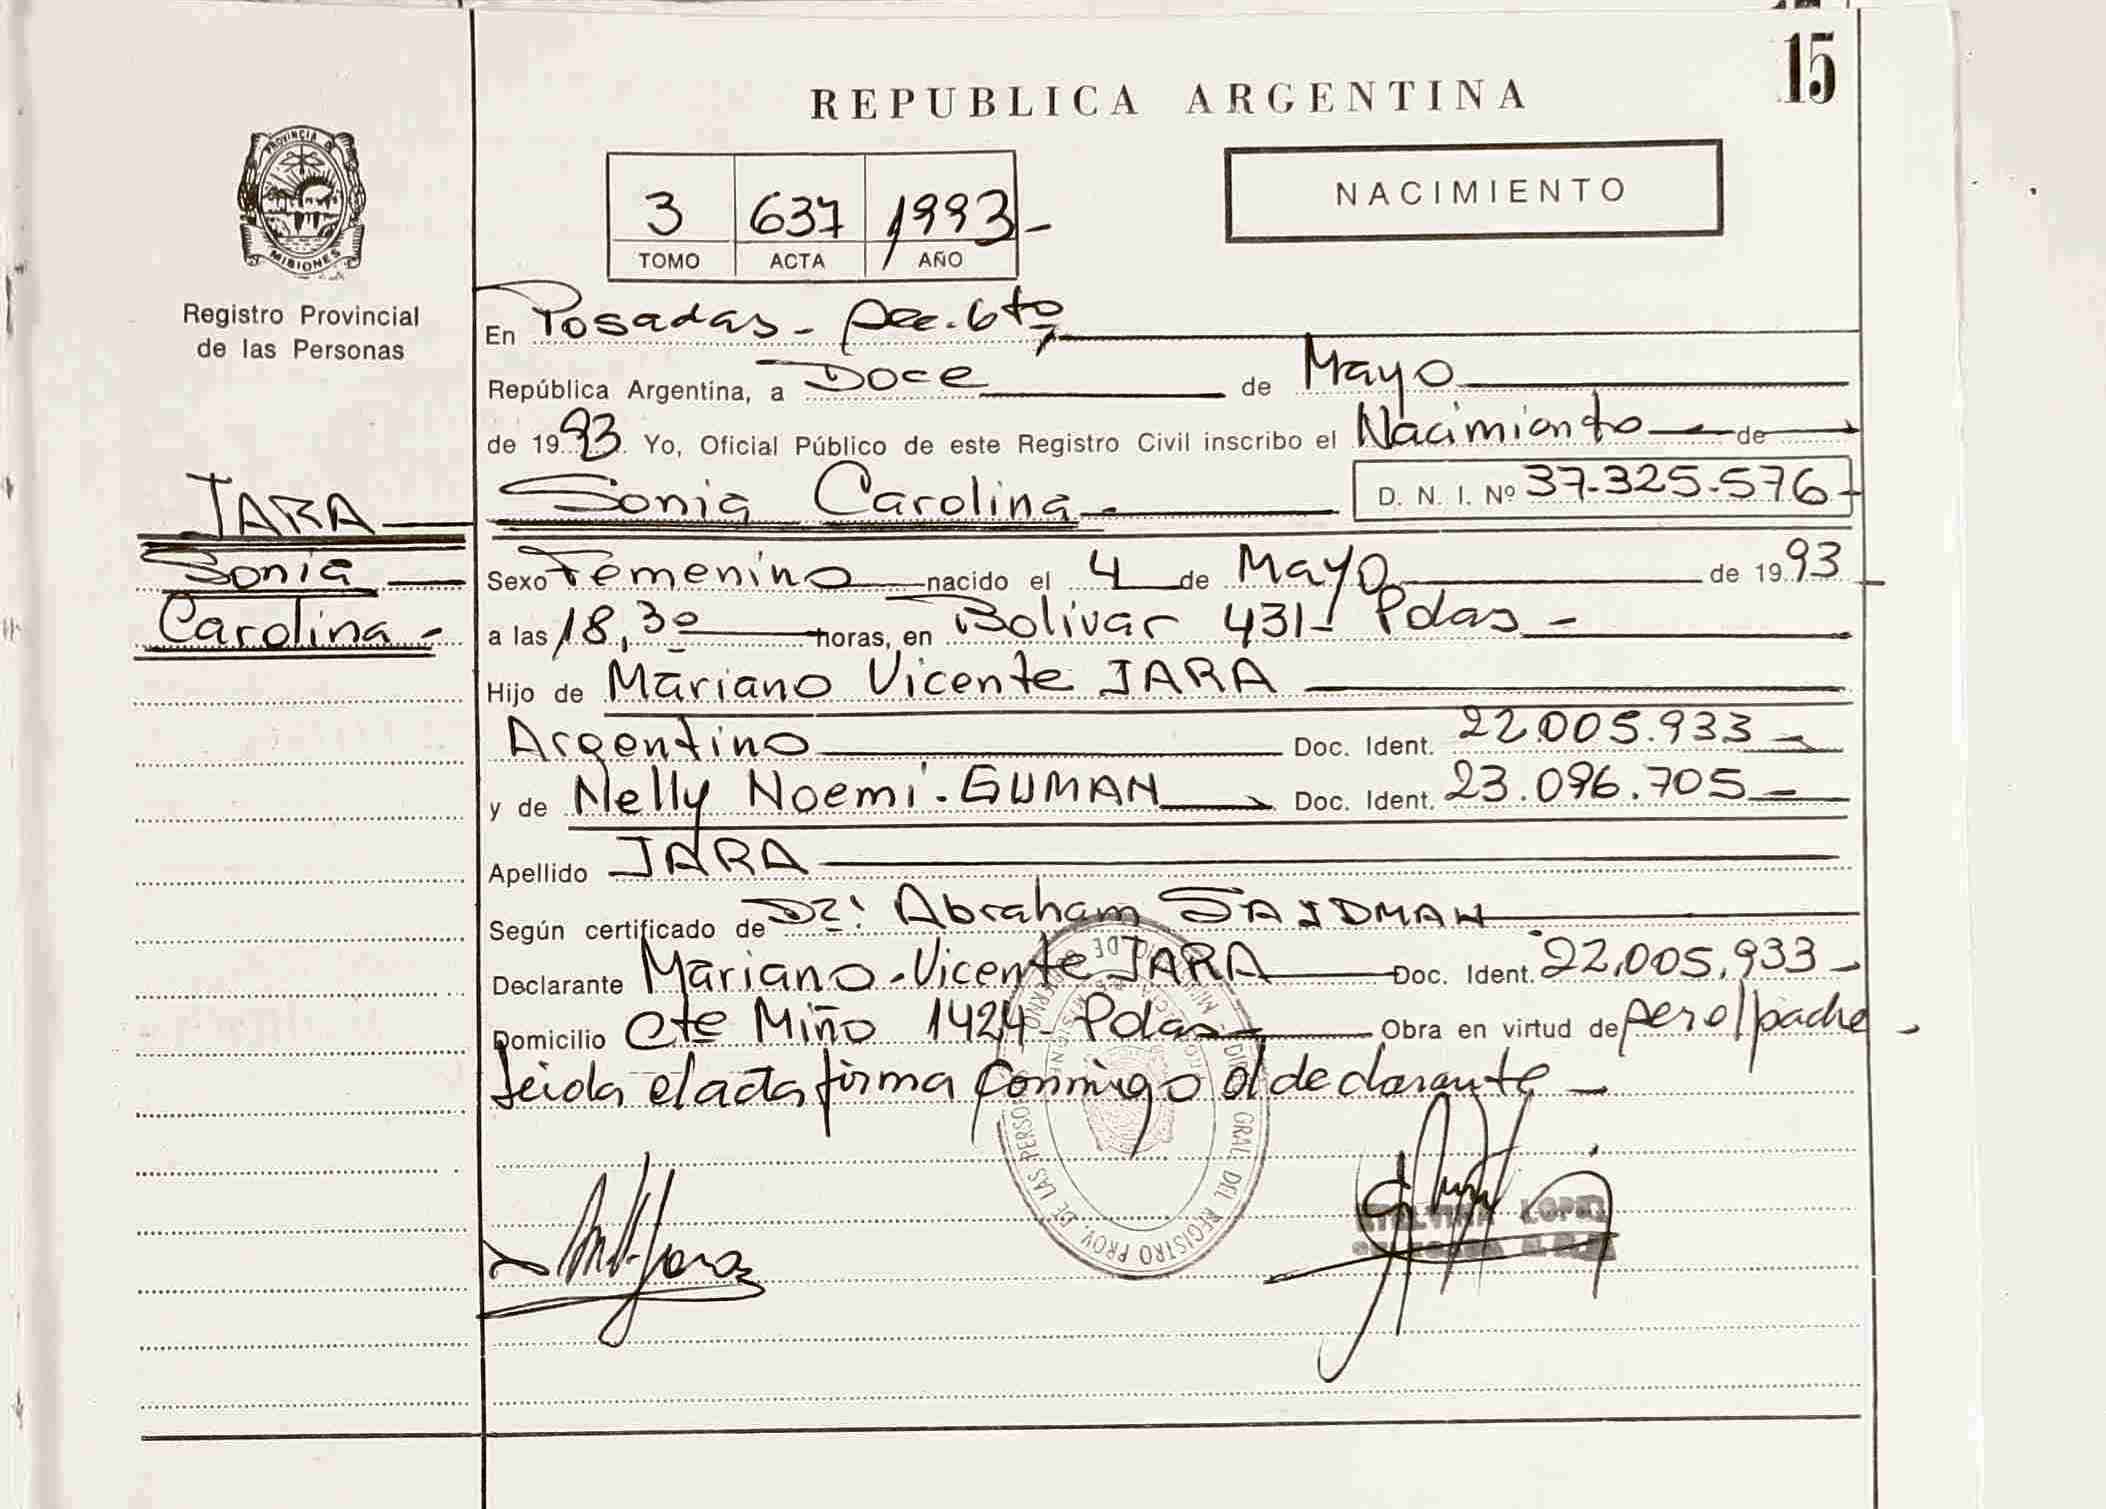 15
REPUBLICA ARGENTINA
PROVINCIA DE
MISIONES
NACIMIENTO
3 637 1993-
TOMO ACTA AÑO
Registro Provincial
de las Personas
En Posadas - Sec. 6to
República Argentina, a Doce de Mayo
de 1993 Yo, Oficial Público de este Registro Civil inscribo el Nacimiento de
JARA
Sonia
Carolina -
Sonia Carolina - D. N. I. Nº 37.325.576-
Sexo Femenino nacido el 4 de Mayo de 1993
a las 18,30 horas, en Bolivar 431- Pdas -
Hijo de Mariano Vicente JARA
Argentino Doc. Ident. 22.005.933-
y de Nelly Noemi. GUMAN Doc. Ident. 23.096.705-
Apellido JARA
Según certificado de Dr: Abraham SAIDMAN
Declarante Mariano-Vicente JARA Doc. Ident. 22.005.933-
Domicilio Cte Miño 1424- Pdas- Obra en virtud de ser el padre-
leida el acta firma conmigo el declarante-
GRAL. DEL REGISTRO PROV. DE LAS PERSO
LOPEZ